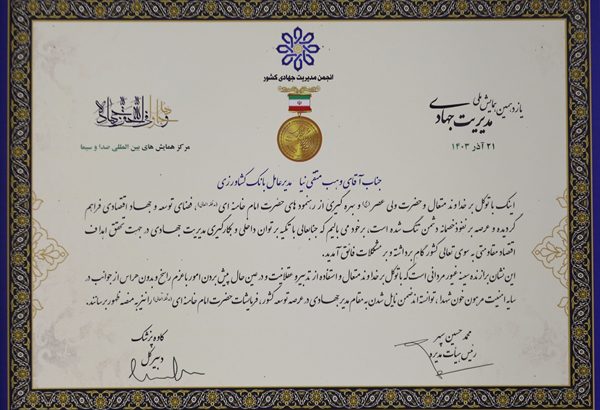 انجمن مدیریت جهادی کشور
یازدهمین همایش ملی
مدیریت جهادی
۲۱ آذر ۱۴۰۳
مرکز همایش های بین المللی صدا و سیما
جناب آقای وهب متقی نیا مدیرعامل بانک کشاورزی
اینک با توکل بر خداوند متعال و حضرت ولی عصر و بهره گیری از رهنمود های حضرت امام خامنه ای، فضای توسعه و جهاد اقتصادی فراهم
گردیده و عرصه بر نفوذ خصمانه دشمن تنگ شده است، برخود می بالیم که جنابعالی با تکیه بر توان داخلی و بکارگیری مدیریت جهادی در جهت تحقق اهداف
اقتصاد مقاومتی به سوی تعالی کشور گام برداشته و بر مشکلات فائق آمدید.
این نشان برازنده سینه غیور مردانی است که با توکل بر خداوند متعال و استفاده از تدبیر و عقلانیت و در عین حال پیش بردن امور با عزم راسخ و بدون هراس از جوانب در
سایه امنیت مرهون خون شهدا، توانسته اند ضمن نایل شدن به مقام مدیر جهادی در عرصه توسعه کشور، فرمایشات حضرت امام خامنه ای را نیز به منصه ظهور برسانند.
محمد حسین سپهر
رئیس هیأت مدیره
کاوه پزشک
دبیر کل